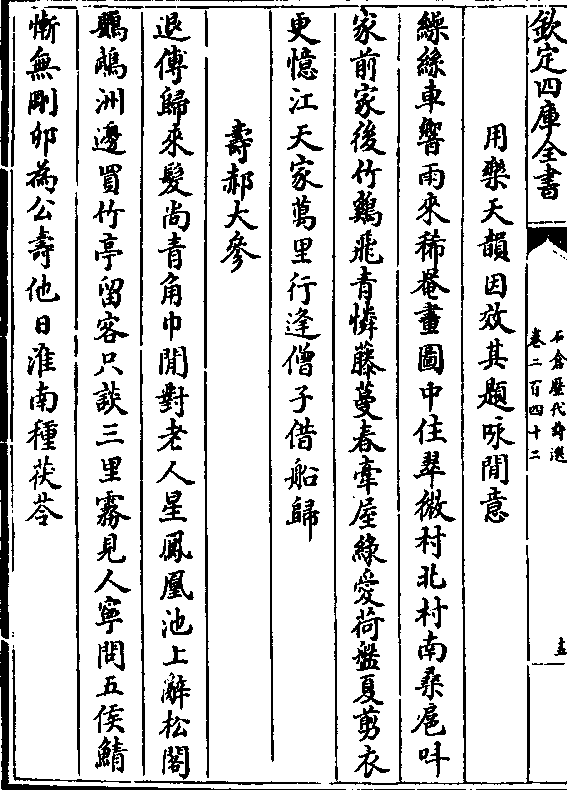 欽定四庫全書
石倉歷代詩選
卷二百四十二
用樂天韻因效其題咏閒意
繰絲車響雨來稀菴畫圖中住翠微村北村南桑扈呌
家前家後竹鷄飛青憐藤蔓春牽屋綠愛荷盤夏剪衣
更憶江天家萬里行逢僧子借船歸
壽郝大參
退傅歸來髮尚青角巾閒對老人星鳳凰池上辭松閣
鸚鵡洲邊買竹亭留客只談三里霧見人寧問五侯鯖
慚無剛卯為公壽他日淮南種茯苓